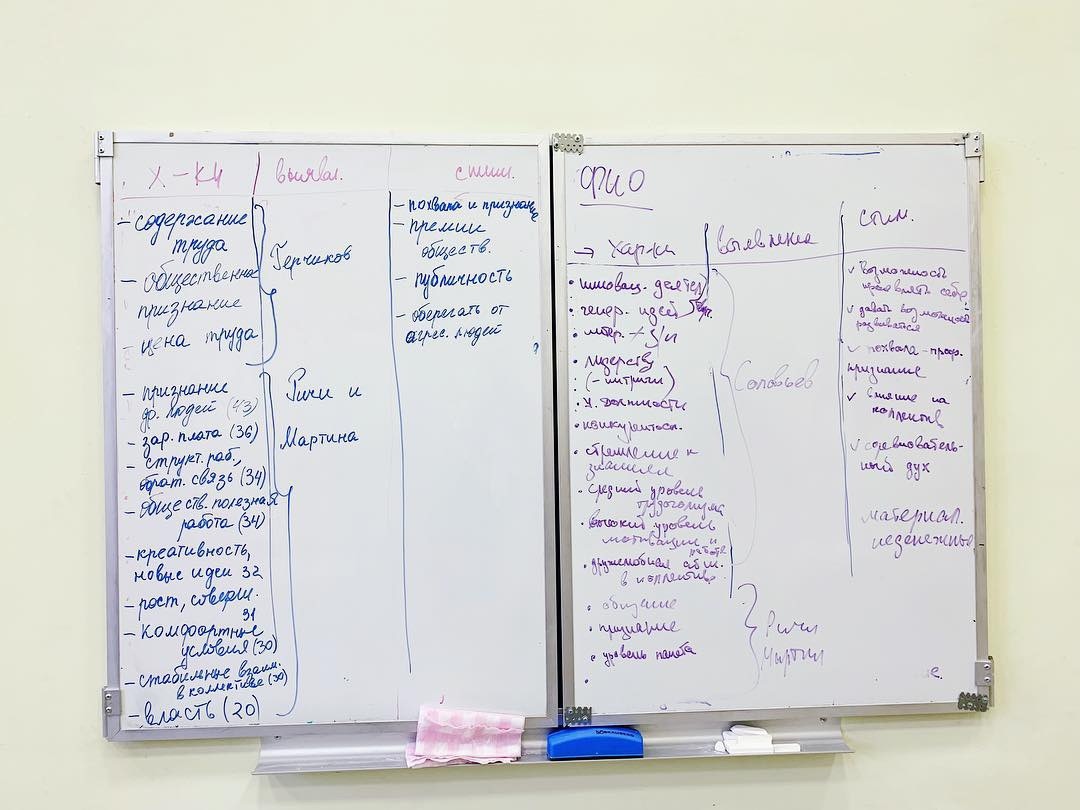 Х-КИ
выявл.
стим.
- содержание
труда
- общественное
признание
- цена труда
Герчиков
- признание
др. людей (43)
- зар. плата (36)
- структ. раб.,
обрат. связь (34)
- обществ. полезная
работа (34)
- креативность,
новые идеи 32
- рост, соверш.
31
- комфортные
условия (30)
- стабильные взаим.
в коллективе (30)
- власть (20)
Ричи и
Мартина
- похвала и признание
- премии
обществ.
- публичность
- оберегать от
агрес. людей
ФИО
→ Хар-ки
выявление
стим.
• инновац. деятел.
• генер. идей
• интер. + З/П
• лидерству
(- интриги)
• конкурентосп.
• стремление к
знаниям
• средний уровень
трудоголизма
• высокий уровень
мотивации к
работе
• дружелюбная атм.
в коллективе
Соловьев
• общение
• признание
• уровень
Ричи
Мартин
✓ возможность
проявлять себя
✓ давать возможность
развиваться
✓ похвала - проф.
признание
✓ влияние на
коллектив
✓ соревнователь-
ный дух
материал.
неденежные